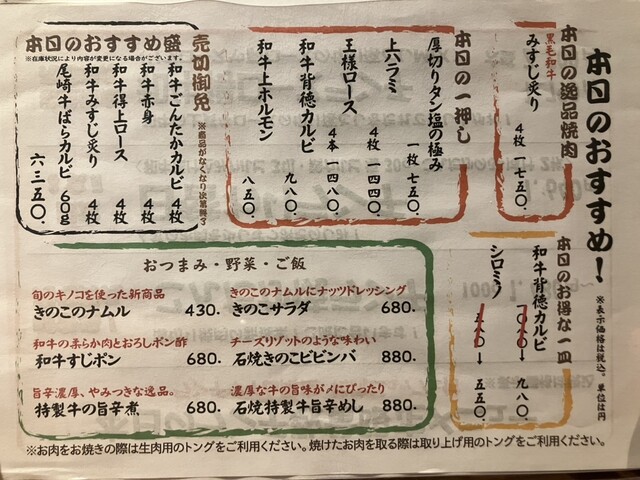 本日のおすすめ！
※表示価格は税込。単位は円
本日の逸品焼肉
黒毛和牛
みすじ炙り
4枚 一七五〇.
本日のお得な一皿
和牛背徳カルビ
→ 九八〇.
シロミノ
→ 五五〇.
本日の一押し
厚切りタン塩の極み
一枚 七五〇.
上ハラミ
4枚 一四四〇.
王様ロース
4本 一四八〇.
和牛背徳カルビ
九八〇.
和牛上ホルモン
八五〇.
本日のおすすめ盛
※在庫状況により内容が変更になる場合がございます。
売切御免
※商品がなくなり次第終了
和牛ごんたかカルビ 4枚
和牛赤身 4枚
和牛得上ロース 4枚
和牛みすじ炙り 4枚
尾崎牛ばらカルビ 60g
六三五〇.
おつまみ・野菜・ご飯
旬のキノコを使った新商品
きのこのナムル 430.
和牛の柔らか肉とおろしポン酢
和牛すじポン 680.
旨辛濃厚、やみつきな逸品。
特製牛の旨辛煮 680.
きのこのナムルにナッツドレッシング
きのこサラダ 680.
チーズリゾットのような味わい
石焼きのこビビンバ 880.
濃厚な牛の旨味が〆にぴったり
石焼特製牛旨辛めし 880.
※お肉をお焼きの際は生肉用のトングをご利用ください。焼けたお肉を取る際は取り上げ用のトングをご利用ください。